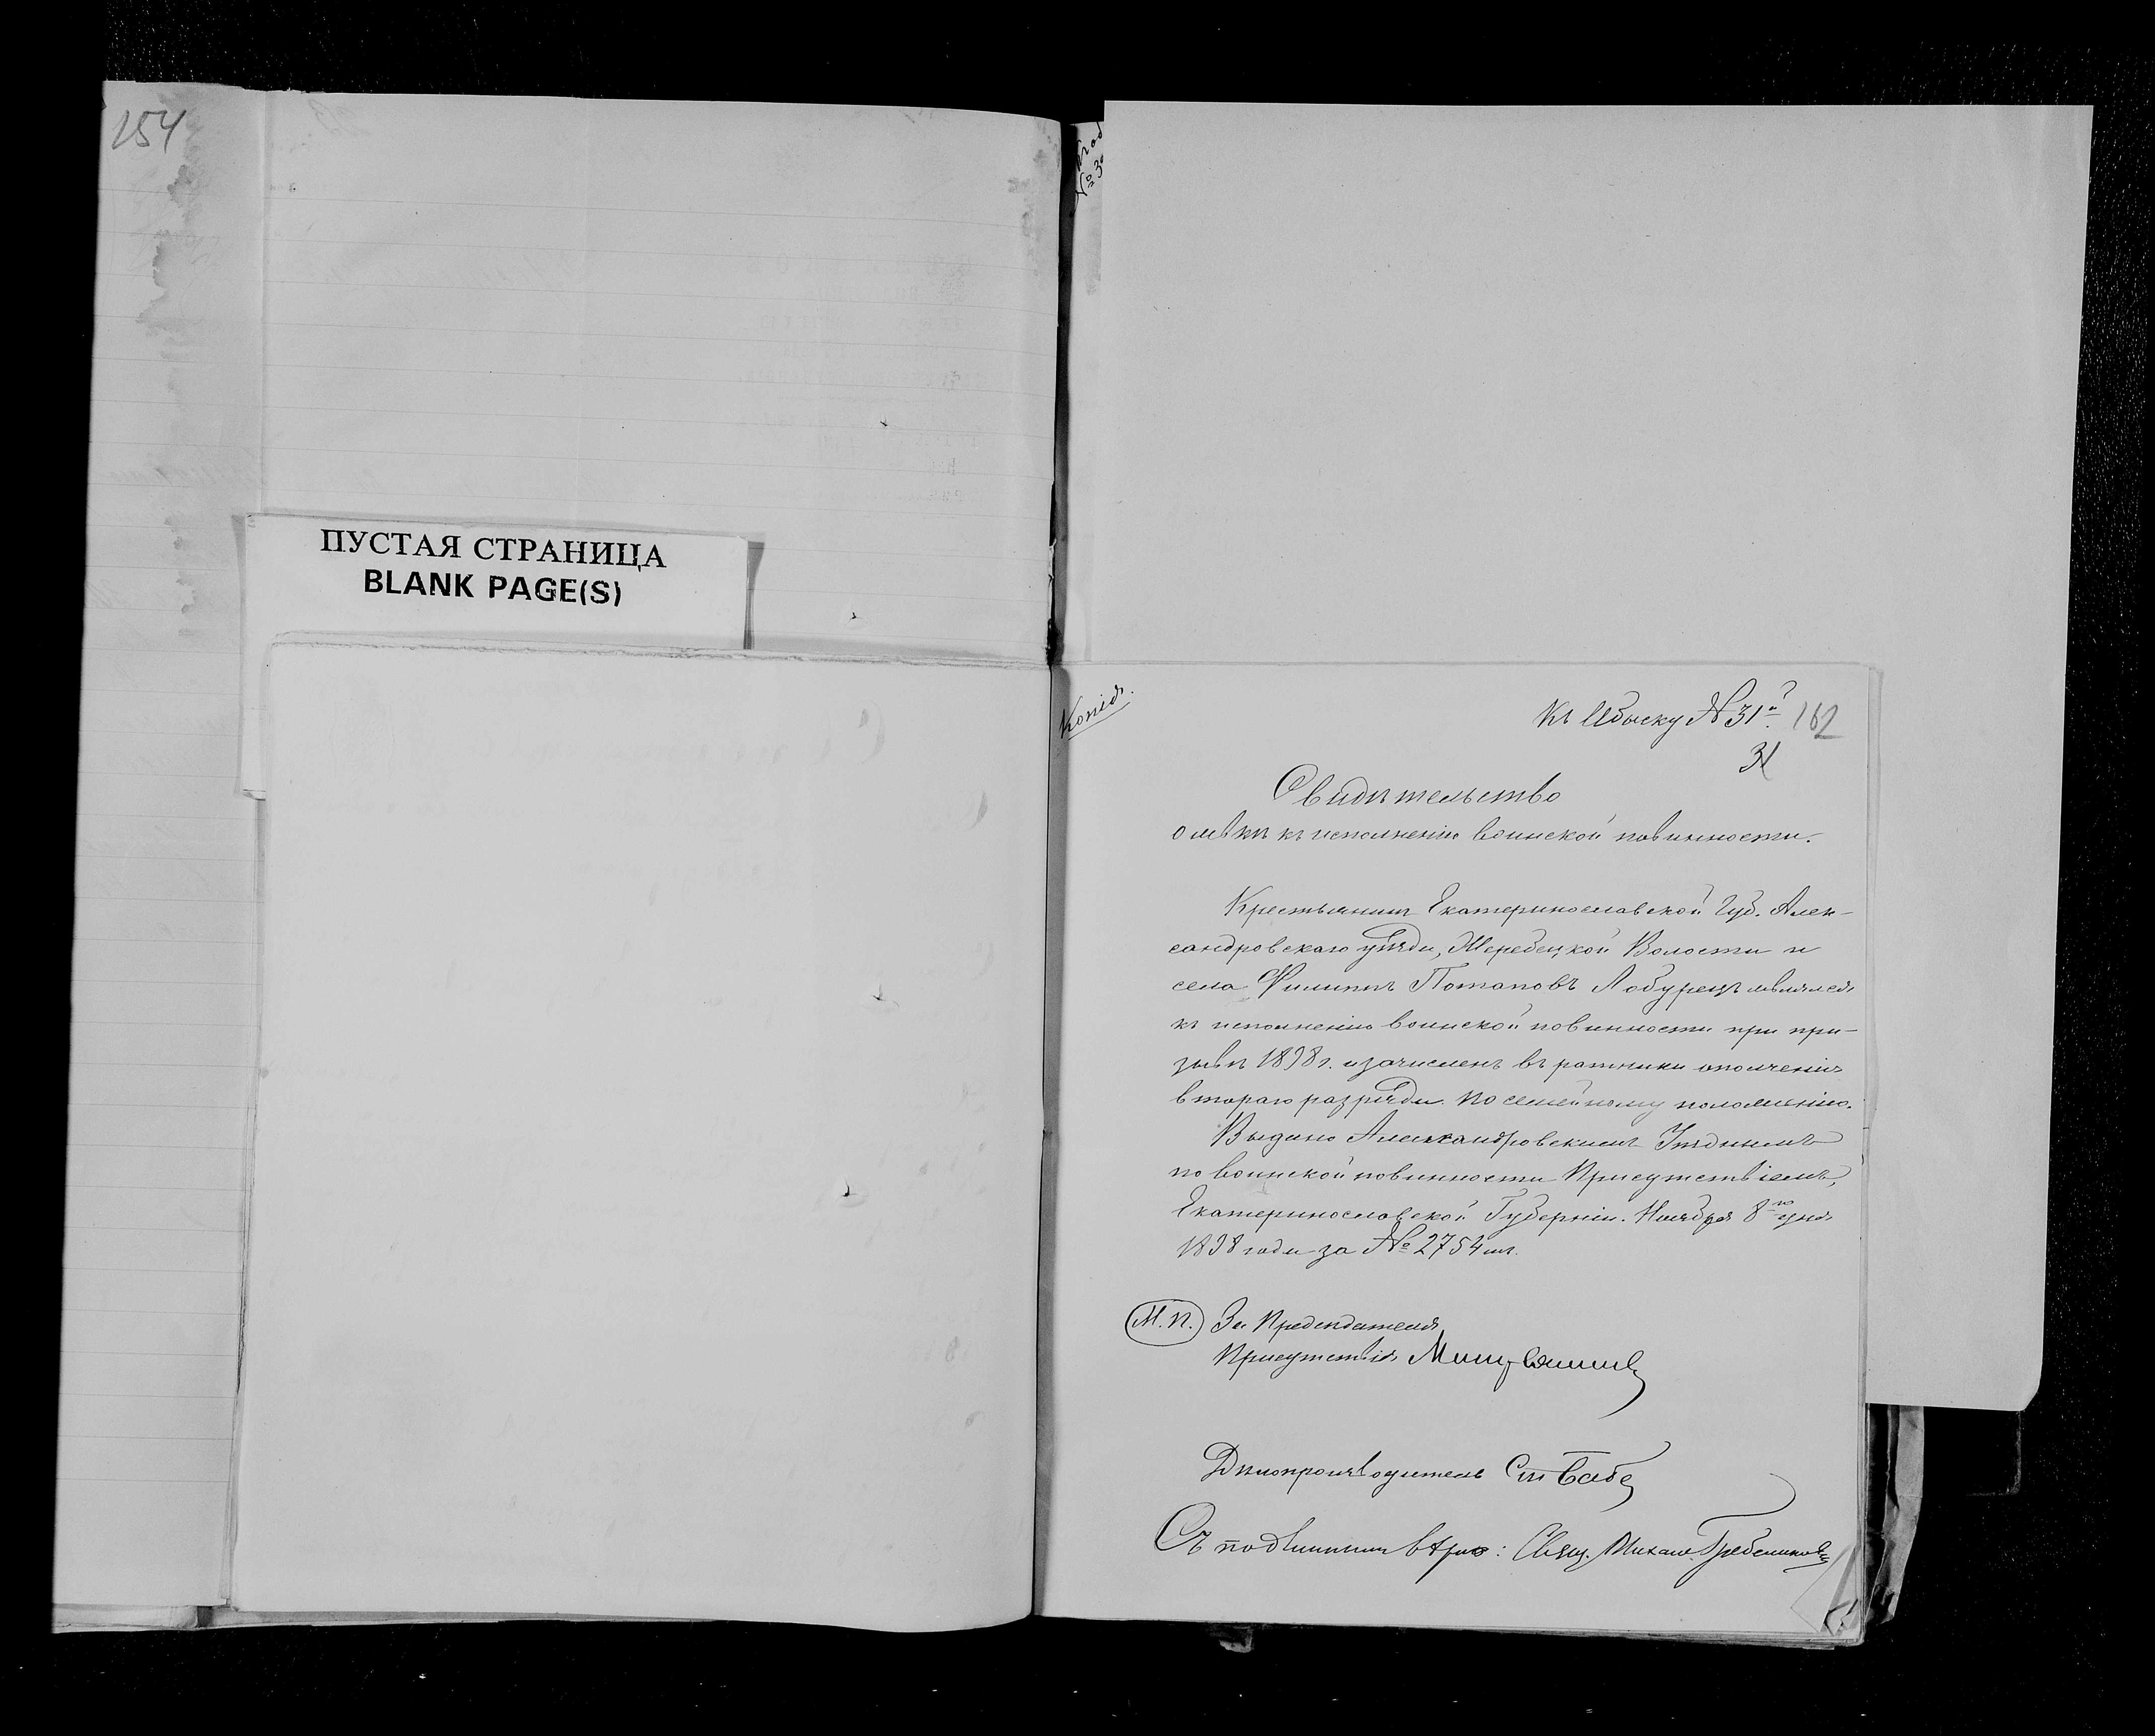 154
ПУСТАЯ СТРАНИЦА
BLANK PAGE(S)
№ 3
Копія.
Къ Обыску № 31й
162
31
Свидѣтельство
о явкѣ къ исполненію воинской повинности.
Крестьянинъ Екатеринославской Губ. Алек-
сандровскаго уѣзда, Жеребецкой Волости и
села Филиппъ Потаповъ Лобурецъ являлся
къ исполненію воинской повинности при при-
зывѣ 1898 г. и зачисленъ въ ратники ополченія
втораго разряда по семейному положенію.
Выдано Александровскимъ Уѣзднымъ
по воинской повинности Присутствіемъ,
Екатеринославской Губерніи. Ноября 8го дня
1898 года за № 2754 мъ.
М.П. За Предсѣдателя
Присутствія
Дѣлопроизводитель
Съ подлиннымъ вѣрно: Свящ. Михаил Гребенниковъ